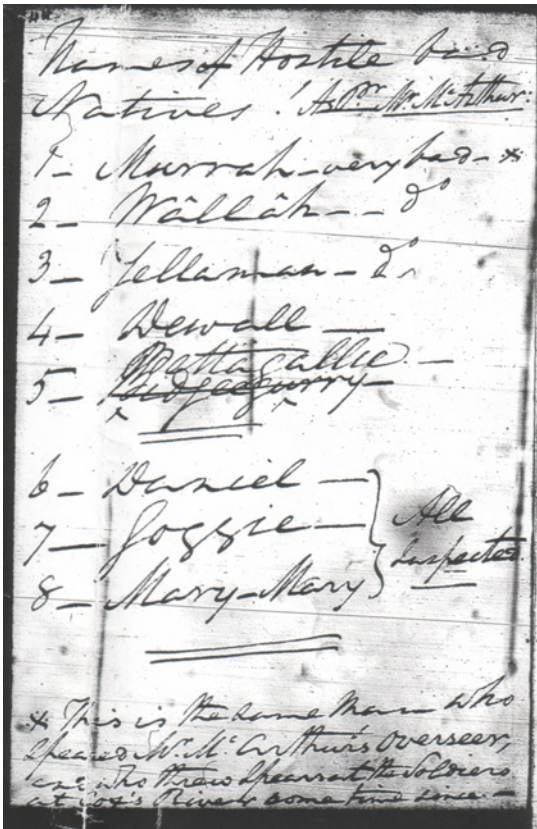 Names of Hostile bad
Natives! As Pr. Mr. McArthur.
1 - Murrah - very bad - *
2 - Wâllâh - - do
3 - Yellaman - do.
4 - Dewall -
Battagallie -
5 -
6 - Daniel -
7 - Goggie - All
8 - Mary-Mary Suspected.
* This is the same man who
Speared Mr. McArthur's Overseer,
and who threw Spears at the Soldiers
at Cox's River some time since. -